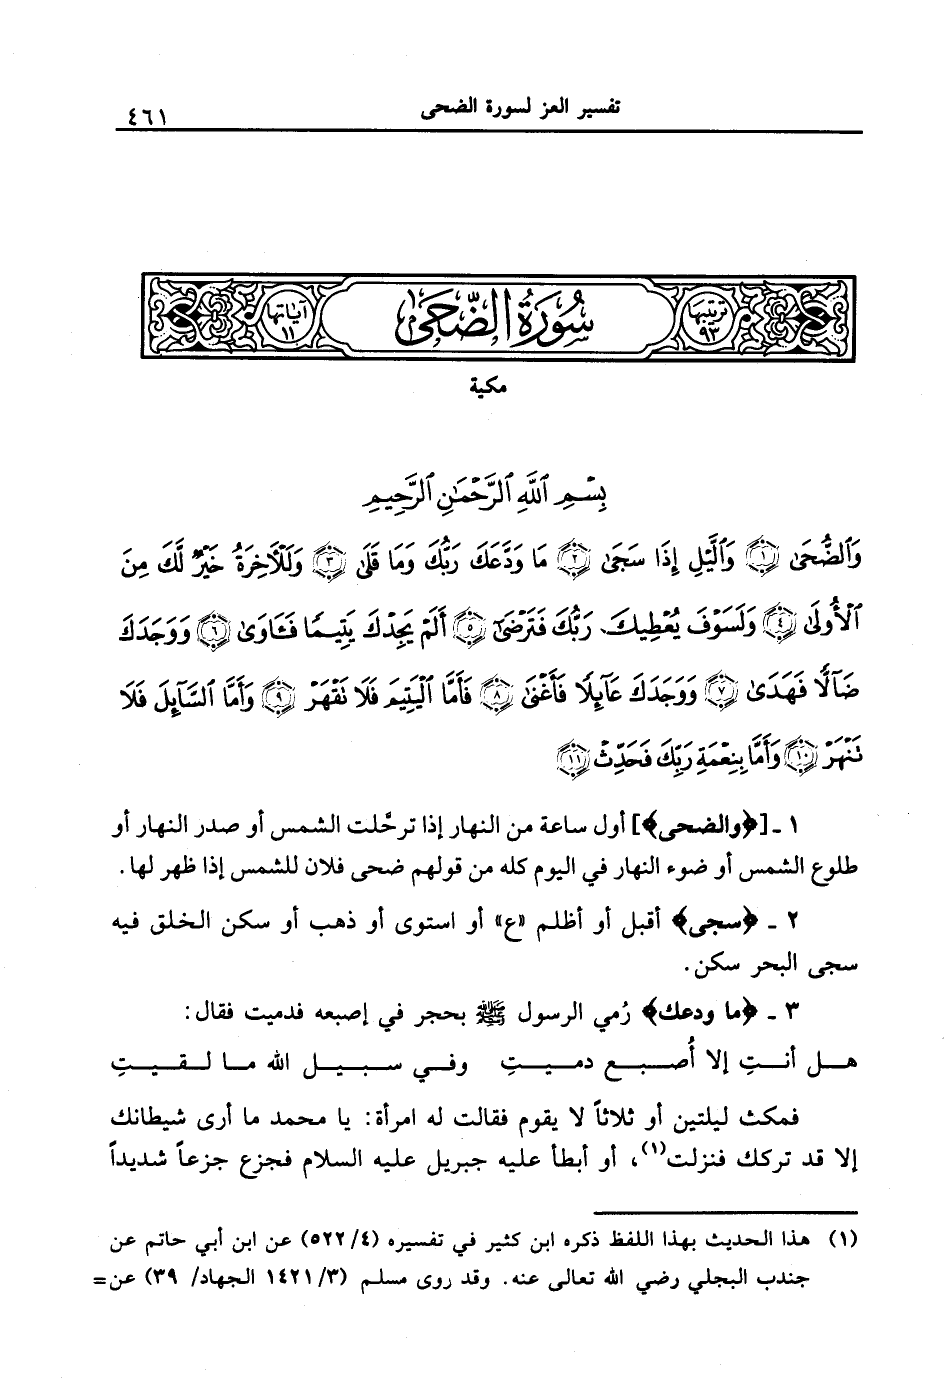 تفسير العز لسورة الضحى
٤٦١
ترتيبها ٩٣
سُورَةُ الضُّحَىٰ
آياتها ١١
مكية
بِسْمِ ٱللَّهِ ٱلرَّحْمَٰنِ ٱلرَّحِيمِ
وَٱلضُّحَىٰ ﴿١﴾ وَٱلَّيْلِ إِذَا سَجَىٰ ﴿٢﴾ مَا وَدَّعَكَ رَبُّكَ وَمَا قَلَىٰ ﴿٣﴾ وَلَلْآخِرَةُ خَيْرٌ لَّكَ مِنَ
ٱلْأُولَىٰ ﴿٤﴾ وَلَسَوْفَ يُعْطِيكَ رَبُّكَ فَتَرْضَىٰٓ ﴿٥﴾ أَلَمْ يَجِدْكَ يَتِيمًا فَـَٔاوَىٰ ﴿٦﴾ وَوَجَدَكَ
ضَآلًّا فَهَدَىٰ ﴿٧﴾ وَوَجَدَكَ عَآئِلًا فَأَغْنَىٰ ﴿٨﴾ فَأَمَّا ٱلْيَتِيمَ فَلَا تَقْهَرْ ﴿٩﴾ وَأَمَّا ٱلسَّآئِلَ فَلَا
تَنْهَرْ ﴿١٠﴾ وَأَمَّا بِنِعْمَةِ رَبِّكَ فَحَدِّثْ ﴿١١﴾
١ ـ [﴿والضحى﴾] أول ساعة من النهار إذا ترحَّلت الشمس أو صدر النهار أو
طلوع الشمس أو ضوء النهار في اليوم كله من قولهم ضحى فلان للشمس إذا ظهر لها.
٢ ـ ﴿سجى﴾ أقبل أو أظلم «ع» أو استوى أو ذهب أو سكن الخلق فيه
سجى البحر سكن.
٣ ـ ﴿ما ودعك﴾ رُمي الرسول ﷺ بحجر في إصبعه فدميت فقال:
هل أنتِ إلا أُصبع دميتِ وفي سبيل الله ما لقيتِ
فمكث ليلتين أو ثلاثاً لا يقوم فقالت له امرأة: يا محمد ما أرى شيطانك
إلا قد تركك فنزلت(١)، أو أبطأ عليه جبريل عليه السلام فجزع جزعاً شديداً
(١) هذا الحديث بهذا اللفظ ذكره ابن كثير في تفسيره (٥٢٢/٤) عن ابن أبي حاتم عن
جندب البجلي رضي الله تعالى عنه. وقد روى مسلم (١٤٢١/٣ الجهاد/ ٣٩) عن=